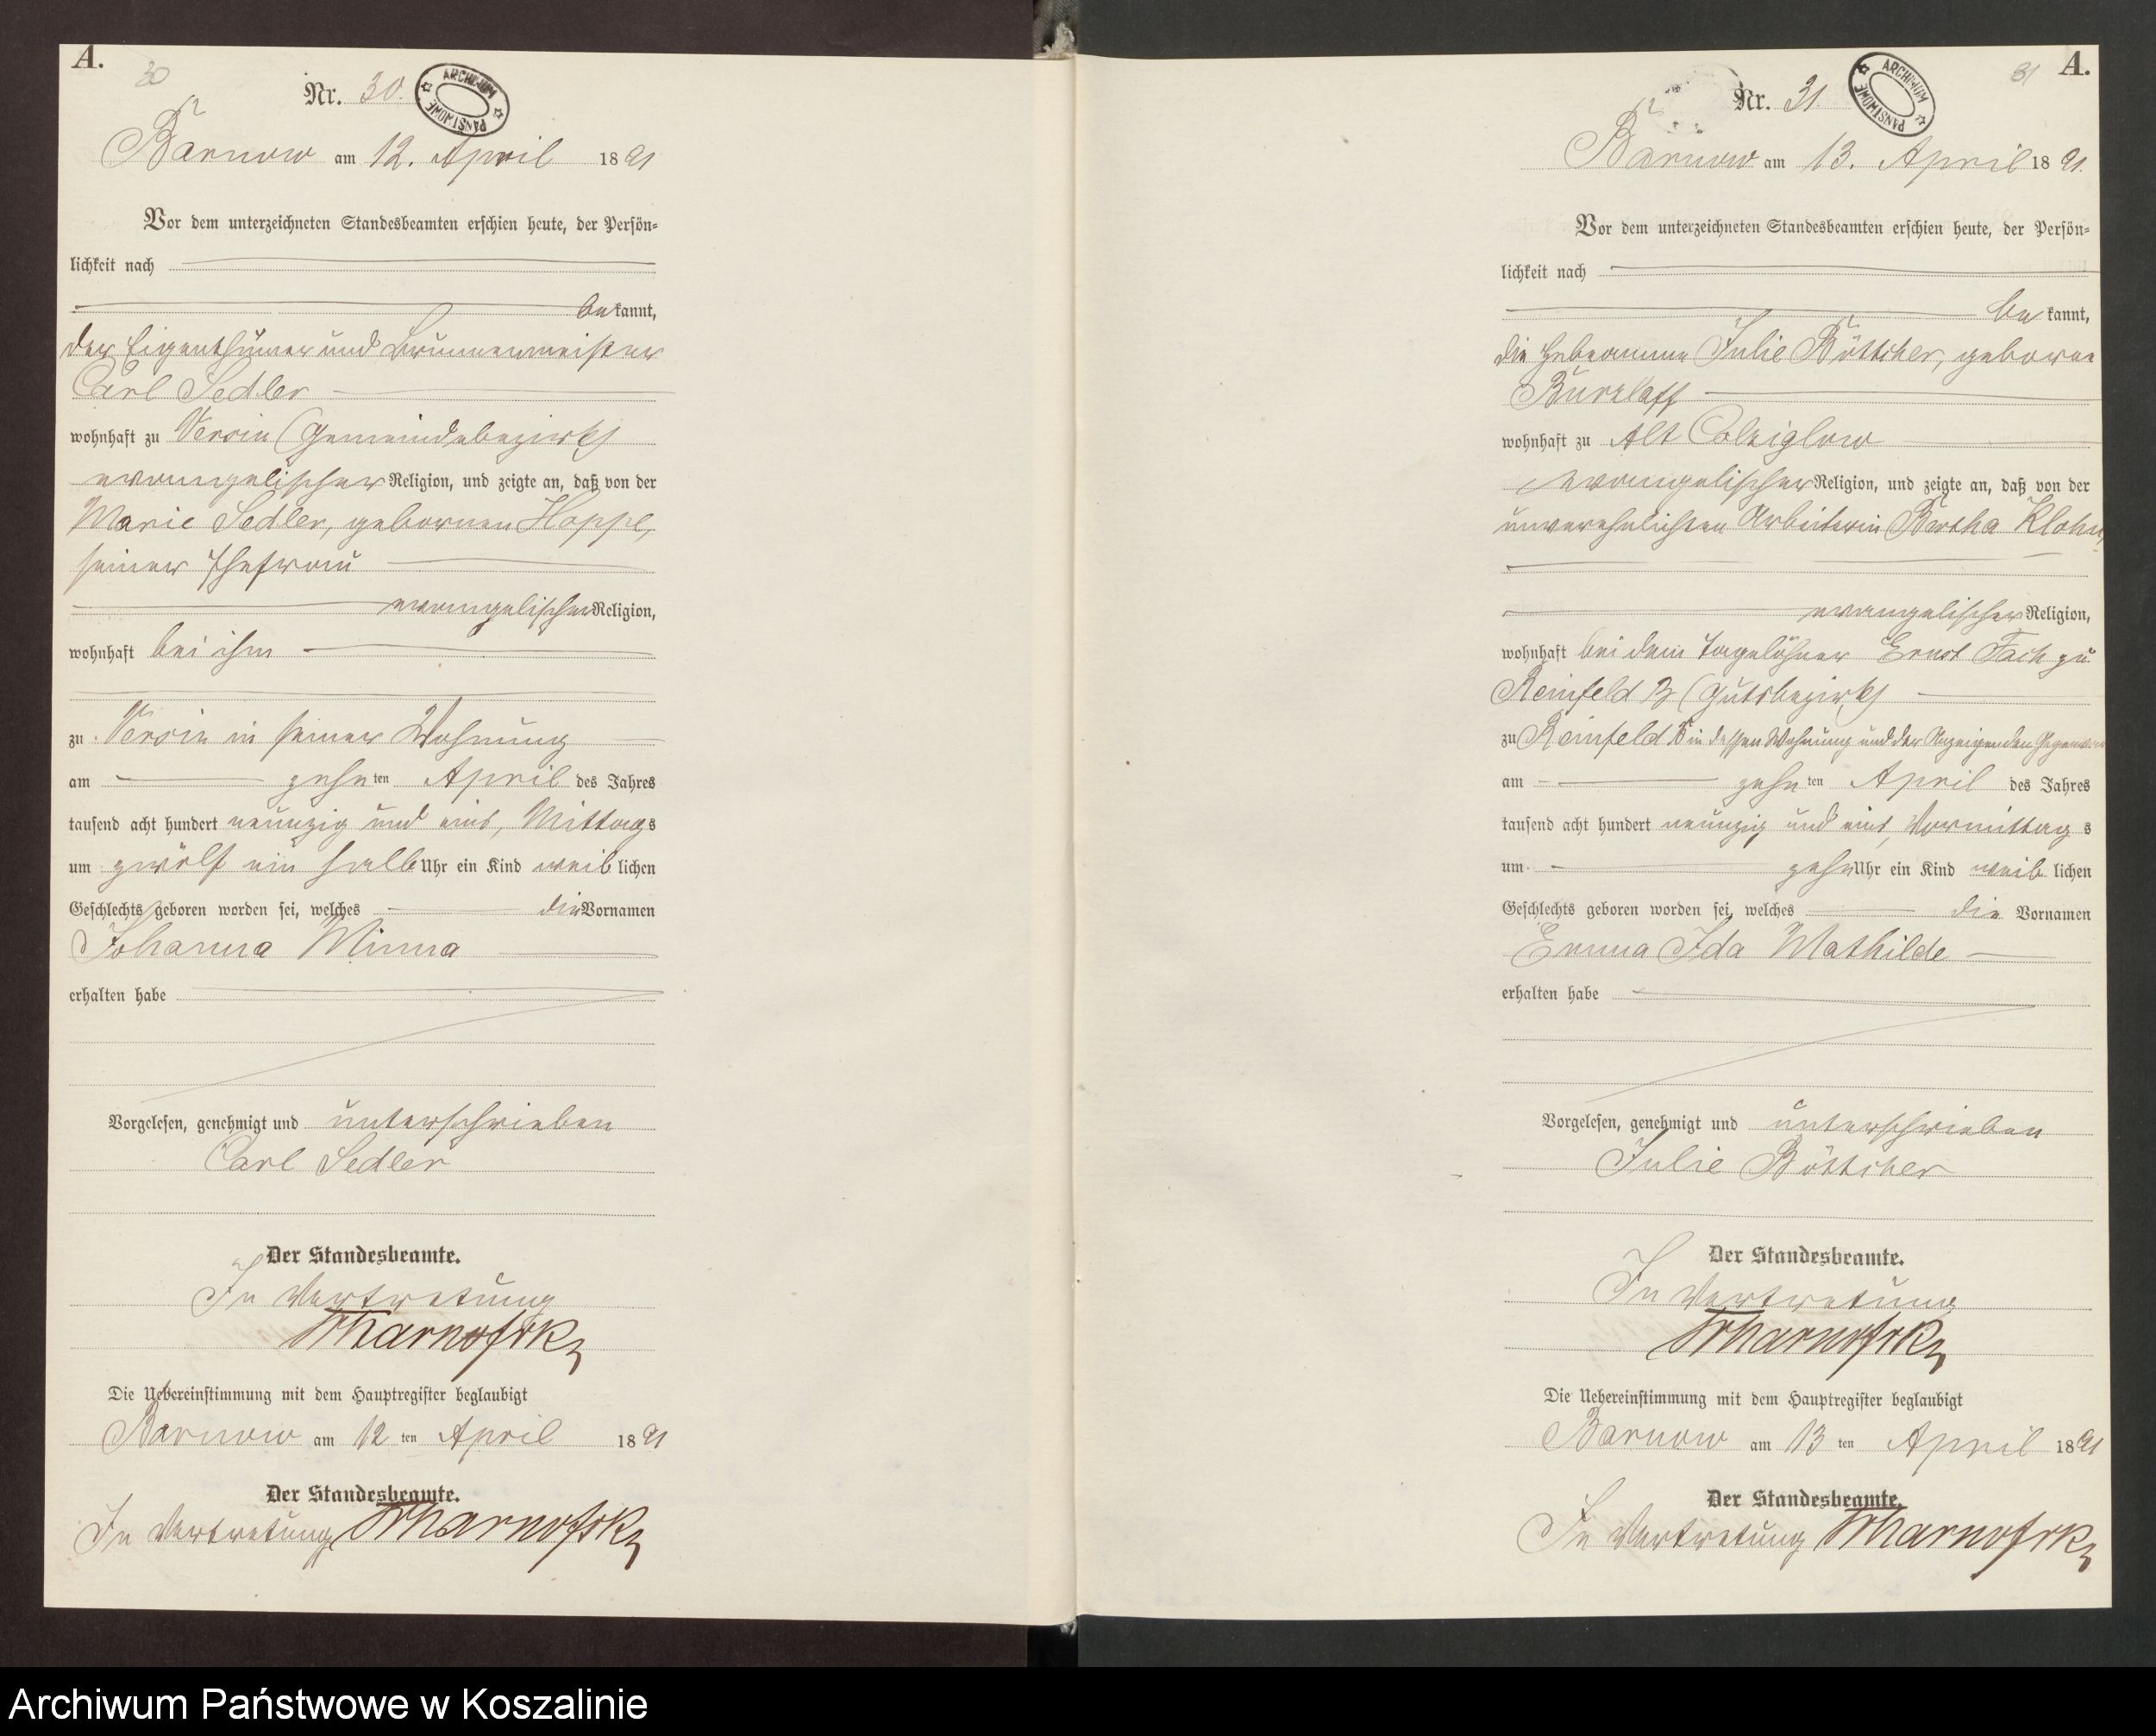 A.
30
Nr. 30.
ARCHIWUM PAŃSTWOWE
Barnow am 12. April 1891
Vor dem unterzeichneten Standesbeamten erschien heute, der Persön-
lichkeit nach
bekannt,
der Eigenthümer und Brunnenmeister
Carl Sedler
wohnhaft zu Versin (Gemeindebezirk)
evangelischer Religion, und zeigte an, daß von der
Marie Sedler, gebornen Hoppe,
seiner Ehefrau
evangelischer Religion,
wohnhaft bei ihm
zu Versin in seiner Wohnung
am zehnten April des Jahres
tausend acht hundert neunzig und eins, Mittags
um zwölf ein halb Uhr ein Kind weiblichen
Geschlechts geboren worden sei, welches die Vornamen
Johanna Minna
erhalten habe
Vorgelesen, genehmigt und unterschrieben
Carl Sedler
Der Standesbeamte.
In Vertretung
Die Uebereinstimmung mit dem Hauptregister beglaubigt
Barnow am 12ten April 1891
Der Standesbeamte.
In Vertretung
31
A.
Nr. 31.
ARCHIWUM PAŃSTWOWE
Barnow am 13. April 1891.
Vor dem unterzeichneten Standesbeamten erschien heute, der Persön-
lichkeit nach
bekannt,
die Hebeamme Julie Böttcher, geborne
Burzlaff
wohnhaft zu Alt Colziglow
evangelischer Religion, und zeigte an, daß von der
unverehelichten Arbeiterin Bertha Klohn,
evangelischer Religion,
wohnhaft bei dem Tagelöhner Ernst Fach zu
Reinfeld B (Gutsbezirk)
zu Reinfeld B in dessen Wohnung und der Anzeigenden Gegenwart
am zehnten April des Jahres
tausend acht hundert neunzig und eins, Vormittags
um zehn Uhr ein Kind weiblichen
Geschlechts geboren worden sei, welches die Vornamen
Emma Ida Mathilde
erhalten habe
Vorgelesen, genehmigt und unterschrieben
Julie Böttcher
Der Standesbeamte.
In Vertretung
Die Uebereinstimmung mit dem Hauptregister beglaubigt
Barnow am 13ten April 1891
Der Standesbeamte.
In Vertretung
Archiwum Państwowe w Koszalinie